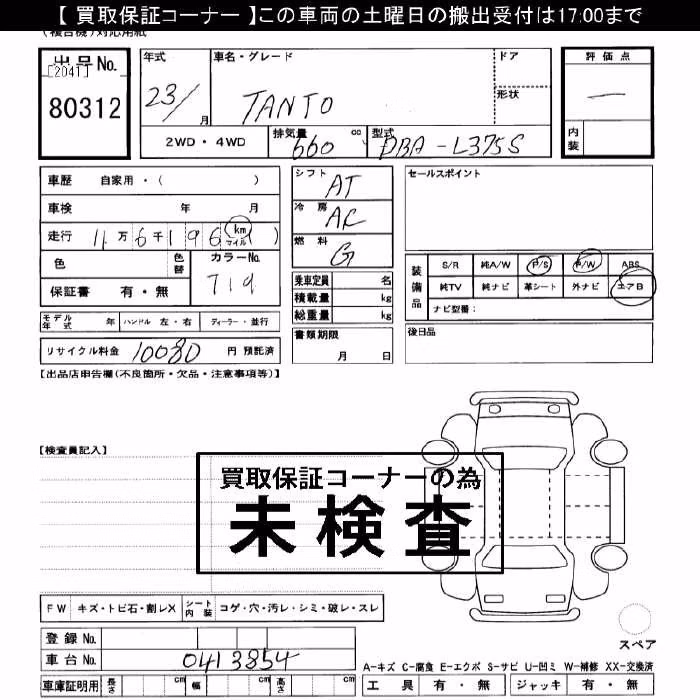 【 買取保証コーナー 】この車両の土曜日の搬出受付は17:00まで
(複合機)対応用紙
出品No. [2041] 80312
年式 23/ 月
車名・グレード TANTO
ドア
形状
評価点 —
内装
2WD・4WD
排気量 660 cc
型式 DBA-L375S
車歴 自家用・( )
車検 年 月
走行 11万6千196 km マイル )
色 色替 カラーNo. T19
保証書 有・無
モデル年式 年 ハンドル 左・右 ディーラー・並行
リサイクル料金 10080 円 預託済
シフト AT
冷房 AC
燃料 G
乗車定員 名
積載量 kg
総重量 kg
書類期限 月 日
セールスポイント
装備品
S/R 純A/W P/S P/W ABS
純TV 純ナビ 革シート 外ナビ エアB
ナビ型番:
後日品
【出品店申告欄(不良箇所・欠品・注意事項等)】
【検査員記入】
買取保証コーナーの為
未検査
FW キズ・トビ石・割レX シート内装 コゲ・穴・汚レ・シミ・破レ・スレ
登録No.
車台No. 0413854
車庫証明用 長さ cm 幅 cm 高さ cm
スペア
A-キズ C-腐食 E-エクボ S-サビ U-凹ミ W-補修 XX-交換済
工具 有・無 ジャッキ 有・無